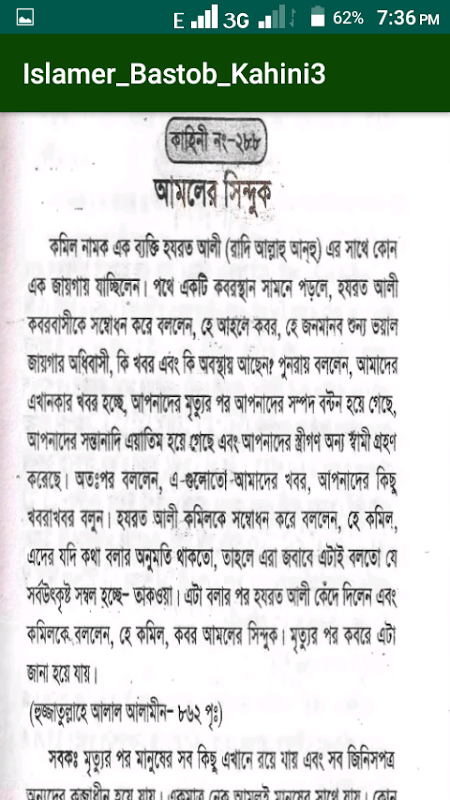 E 3G 62% 7:36 PM
Islamer_Bastob_Kahini3
কাহিনী নং-২৮৮
আমলের সিন্দুক
কমিল নামক এক ব্যক্তি হযরত আলী (রাদি আল্লাহু আনহু) এর সাথে কোন
এক জায়গায় যাচ্ছিলেন। পথে একটি কবরস্থান সামনে পড়লে, হযরত আলী
কবরবাসীকে সম্বোধন করে বললেন, হে আহলে কবর, হে জনমানব শুন্য ভয়াল
জায়গার অধিবাসী, কি খবর এবং কি অবস্থায় আছেন? পুনরায় বললেন, আমাদের
এখানকার খবর হচ্ছে, আপনাদের মৃত্যুর পর আপনাদের সম্পদ বন্টন হয়ে গেছে,
আপনাদের সন্তানাদি এয়াতিম হয়ে গেছে এবং আপনাদের স্ত্রীগণ অন্য স্বামী গ্রহণ
করেছে। অতঃপর বললেন, এ গুলোতো আমাদের খবর, আপনাদের কিছু
খবরাখবর বলুন। হযরত আলী কমিলকে সম্বোধন করে বললেন, হে কমিল,
এদের যদি কথা বলার অনুমতি থাকতো, তাহলে এরা জবাবে এটাই বলতো যে
সর্বউৎকৃষ্ট সম্বল হচ্ছে- তাকওয়া। এটা বলার পর হযরত আলী কেঁদে দিলেন এবং
কমিলকে বললেন, হে কমিল, কবর আমলের সিন্দুক। মৃত্যুর পর কবরে এটা
জানা হয়ে যায়।
(হুজ্জাতুল্লাহে আলাল আলামীন- ৮৬২ পৃঃ)
সবকঃ মৃত্যুর পর মানুষের সব কিছু এখানে রয়ে যায় এবং সব জিনিসপত্র
অন্যদের কব্জাধীন হয়ে যায়। একমাত্র নেক আমলই মানুষের সাথে যায়। কোন